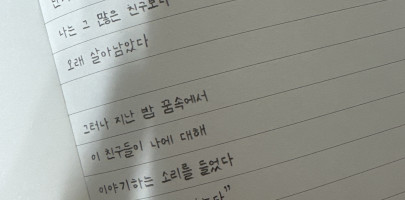 나는 그 많은 친구보다
오래 살아남았다
그러나 지난 밤 꿈속에서
이 친구들이 나에 대해
이야기하는 소리를 들었다